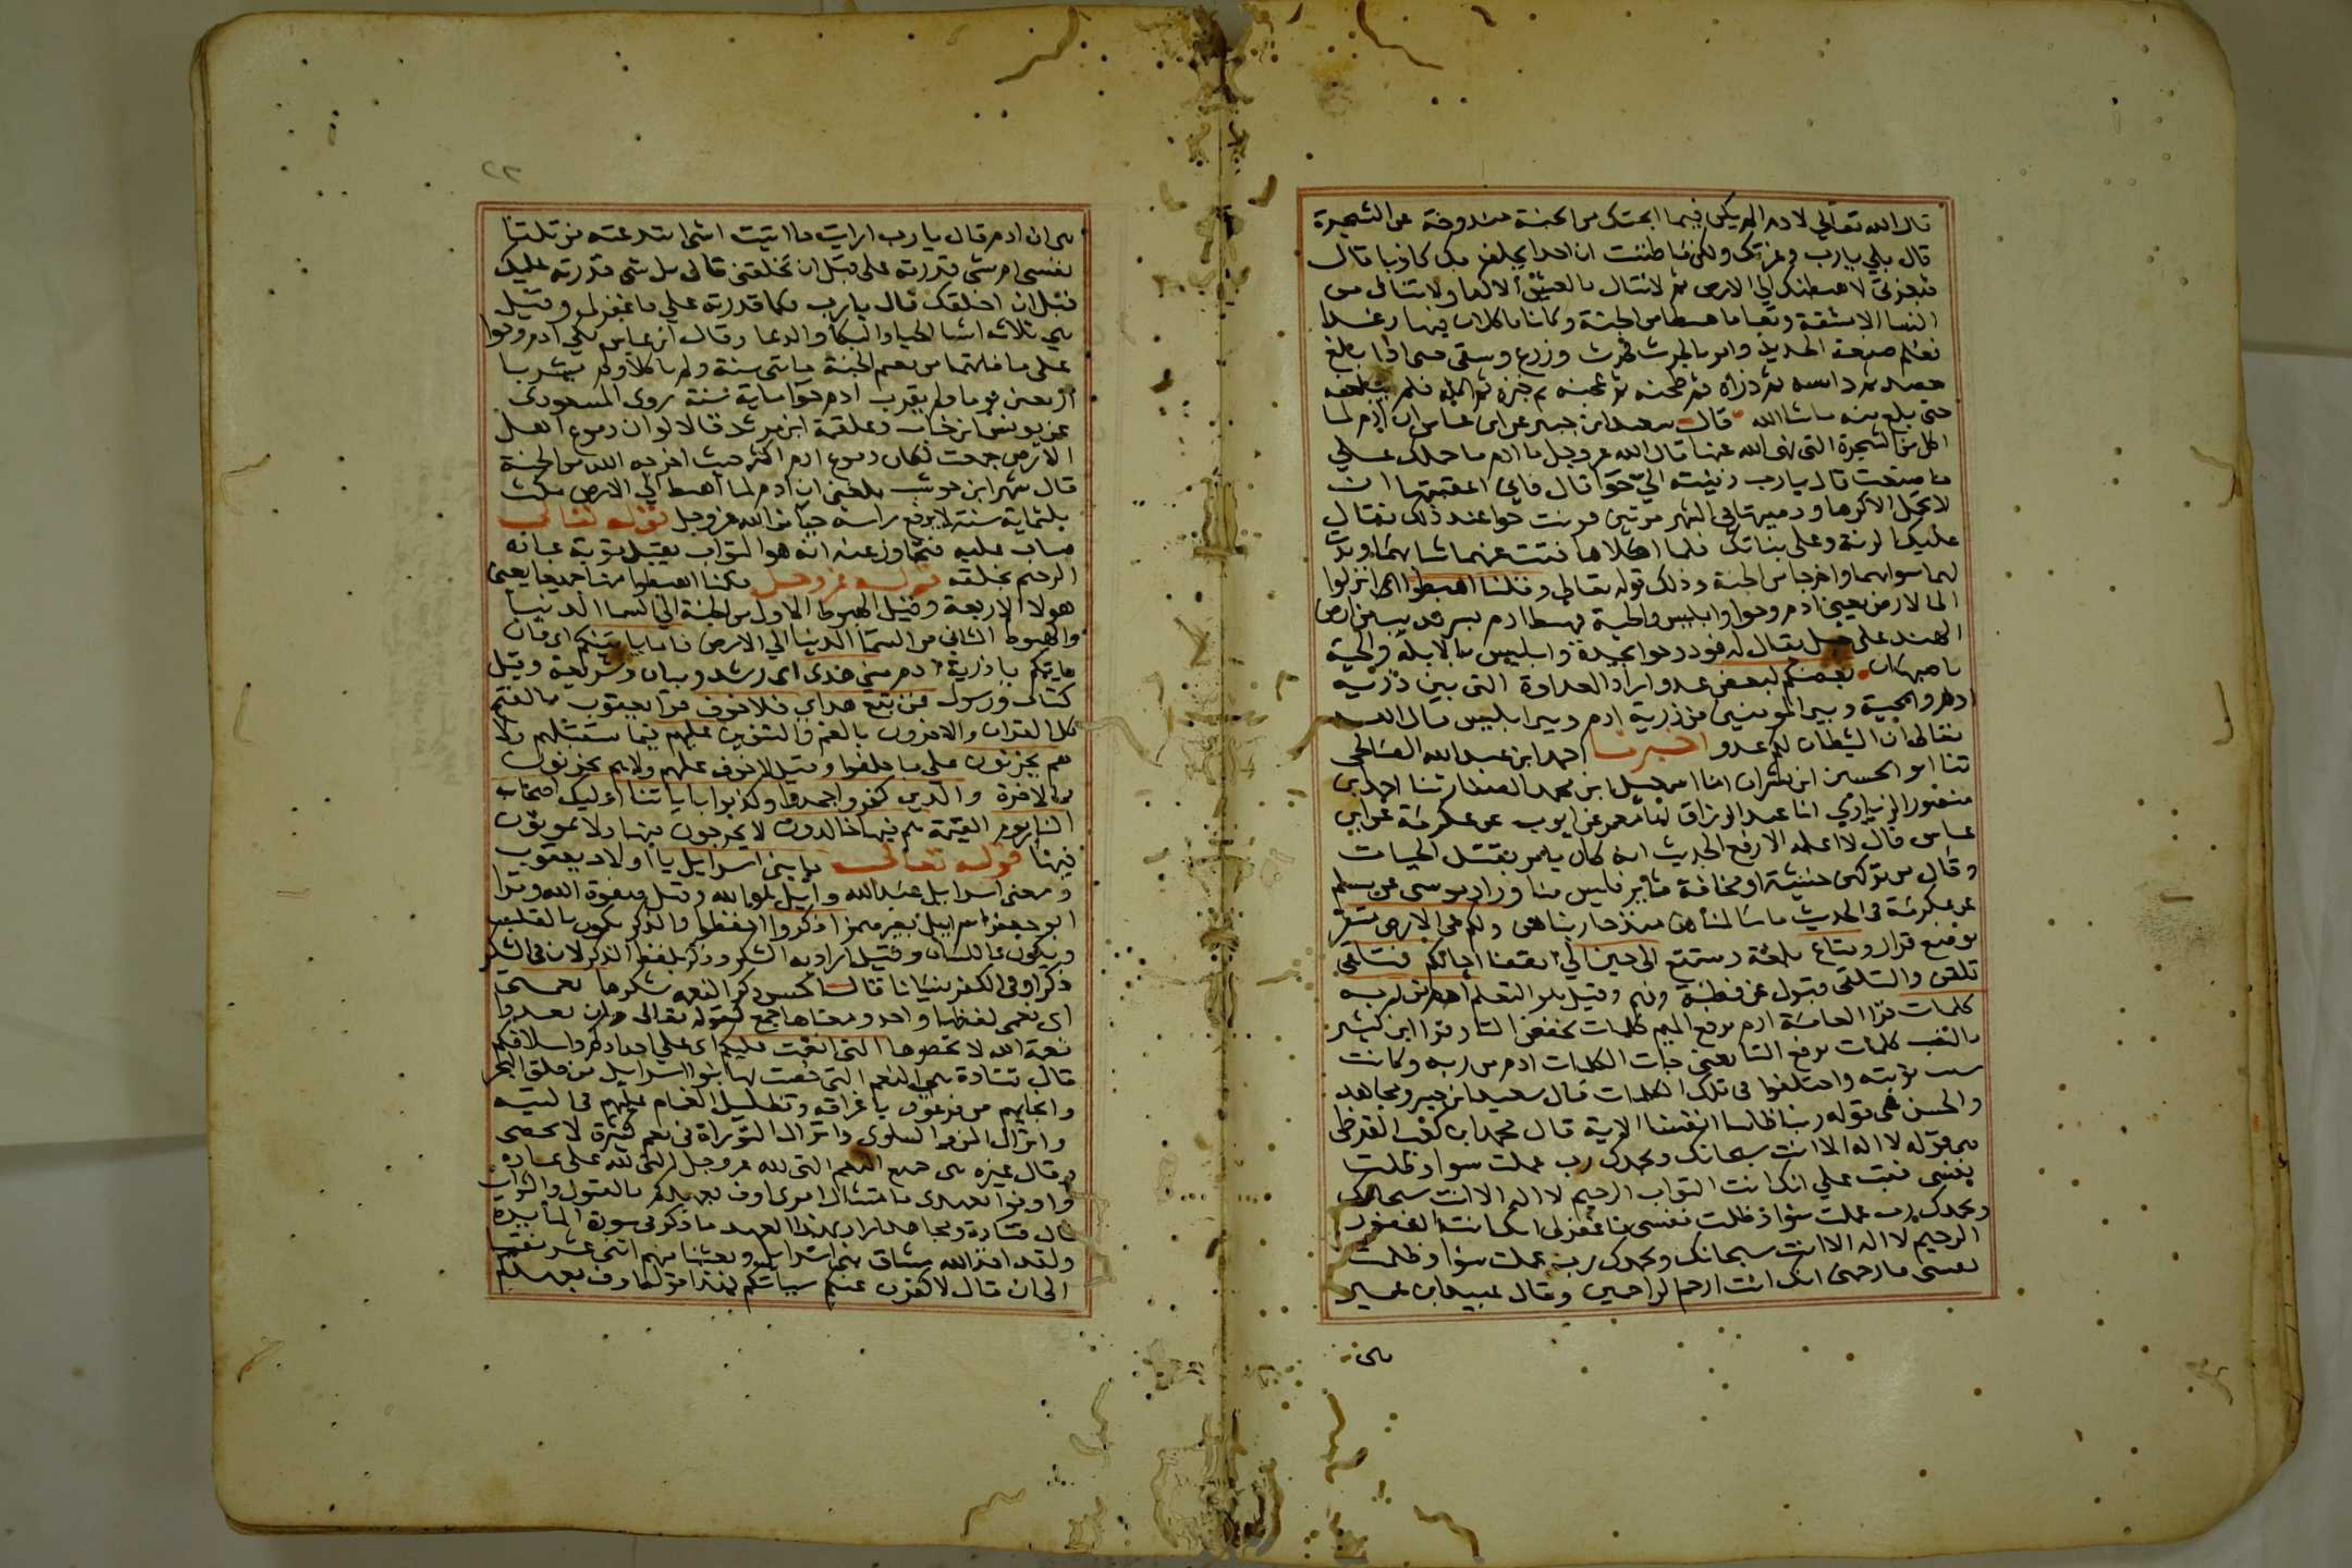 قال الله تعالى لادم الم يكن فيما ابحتك من الجنة مندوحة عن الشجرة
قال بلي يارب وعزتك ولكن ما ظننت ان احدا يحلف بك كاذبا قال
فبعزتي لاهبطنك الي الارض ثم لاتنال العيش الا كدا
النسا الا مشقة فاهبطا من الجنة وكانا ياكلان فيها رغدا
فعلم صنعة الحديد وامر بالحرث فحرث وزرع وسقى حتى اذا بلغ
حصد ثم داسه ثم ذراه ثم طحنه ثم عجنه ثم خبزه ثم اكله فلم يبلغه
حتى بلغ منه ماشا الله قال سعيد ابن جبير عن ابن عباس ان ادم لما
اكل من الشجرة التي نهى الله عنها قال الله عز وجل يا ادم ما حملك علي
ما صنعت قال يارب زينته الي حوا قال فاني اعقبتها ان
لا تحمل الا كرها ودميتها في الشهر مرتين فرنت حوا عند ذلك فقال
عليك الرنة وعلى بناتك فلما اكلا منها
لهما سواتهما واخرجا من الجنة وذلك قوله تعالى وقلنا اهبطوا اي انزلوا
الى الارض يعني ادم وحوا وابليس والحية فهبط ادم بسرنديب من ارض
الهند على جبل يقال له نود وحوا بجدة وابليس بالابلة والحية
باصبهان بعضكم لبعض عدو اراد العداوة التي بين ذرية
ادم والحية وبين المومنين من ذرية ادم وبين ابليس قال الله
تعالى ان الشيطان لكم عدو اخبرنا احمد ابن عبد الله الصالحي
ثنا ابو الحسين ابن بشران انا اسمعيل ابن محمد الصفار ثنا احمد ابن
منصور الزيادي انا عبد الرزاق انا معمر عن ايوب عن عكرمة عن ابن
عباس قال لا اعلمه الا رفع الحديث انه كان يامر بقتل الحيات
وقال من تركهن خشية او مخافة ثاير فليس منا وزاد موسى عن مسلم
عن عكرمة في الحديث ما سالمناهن منذ حاربناهن ولكم في الارض مستقر
موضع قرار ومتاع بلغة ومستمتع الى حين الي انقضا اجالكم فتلقى
تلقى والتلقي قبول عن فطنة وفهم وقيل هو التعلم ادم من ربه
كلمات قرا العامة ادم برفع الميم كلمات بخفض التا وقرا ابن كثير
بالنصب كلمات برفع التا يعني جات الكلمات ادم من ربه وكانت
سبب توبته واختلفوا في تلك الكلمات قال سعيد ابن جبير ومجاهد
والحسن هي قوله ربنا ظلمنا انفسنا الاية قال محمد ابن كعب القرظي
هي قوله لا اله الا انت سبحانك وبحمدك رب عملت سوا وظلمت
نفسي فتب علي انك انت التواب الرحيم لا اله الا انت سبحانك
وبحمدك رب عملت سوا وظلمت نفسي فاغفر لي انك انت الغفور
الرحيم لا اله الا انت سبحانك وبحمدك رب عملت سوا وظلمت
نفسي فارحمني انك انت ارحم الراحمين وقال عبيد ابن عمير
هي
٢٢
هي ان ادم قال يارب ارايت ما اتيت اشي ابتدعته من تلقا
نفسي ام شي قدرته على قبل ان تخلقني قال بل شي قدرته عليك
قبل ان اخلقك قال يارب فكما قدرته علي فاغفر لي وقيل
هي ثلاثة اشيا الحيا والبكا والدعا وقال ابن عباس بكي ادم وحوا
على ما فاتهما من نعيم الجنة مايتي سنة ولم ياكلا ولم يشربا
اربعين يوما ولم يقرب ادم حوا ماية سنة روى المسعودي
عن يونس ابن خباب وعلقمة ابن مرثد قالا لو ان دموع اهل
الارض جمعت لكان دموع ادم اكثر حيث اخرجه الله من الجنة
قال شهر ابن حوشب بلغني ان ادم لما اهبط الي الارض مكث
ثلثماية سنة لا يرفع راسه حيا من الله عز وجل قوله تعالى
فتاب عليه فتجاوز عنه انه هو التواب يقبل توبة عباده
الرحيم بخلقه قوله عز وجل قلنا اهبطوا منها جميعا يعني
هولا الاربعة وقيل الهبوط الاول من الجنة الى السما الدنيا
والهبوط الثاني من السما الدنيا الي الارض فاما ياتينكم اي فان
ياتيكم يا ذرية ادم مني هدى اى رشد وبيان وشريعة وقيل
كتاب ورسول فمن تبع هداي فلا خوف قرا يعقوب بالفتح
كل القران والاخرون بالضم والتنوين عليهم فيما يستقبلهم ولا
هم يحزنون على ما خلفوا وقيل لا خوف عليهم ولا هم يحزنون
في الاخرة والذين كفروا جحدوا وكذبوا باياتنا اوليك اصحاب
النار يوم القيمة هم فيها خالدون لا يخرجون منها ولا يموتون
فيها قوله تعالى يا بني اسرايل يا اولاد يعقوب
ومعنى اسرايل عبد الله وايل هو الله وقيل صفوة الله وقرا
ابو جعفر اسرايل بغير همز اذكروا احفظوا والذكر يكون بالقلب
ويكون باللسان وقيل اراد به الشكر وذكر بلفظ الذكر لان في الشكر
ذكرا وفي الكفر نسيانا قال الحسن ذكر النعمة شكرها نعمتي
اي نعمي لفظها واحد ومعناها جمع كقوله تعالى وان تعدوا
نعمة الله لا تحصوها التي انعمت عليكم اى علي اجدادكم واسلافكم
قال قتادة هي النعم التي خصت بها بنو اسرايل من فلق البحر
وانجايهم من فرعون باغراقه وتظليل الغمام عليهم في التيه
وانزال المن والسلوى وانزال التوراة في نعم كثيرة لا تحصى
وقال غيره هي جميع النعم التي لله عز وجل على عباده
واوفوا بعهدي بامتثال امرى اوف بعهدكم بالقبول والثواب
قال قتادة ومجاهد اراد بهذا العهد ما ذكر في سورة المايدة
ولقد اخذ الله ميثاق بني اسرايل وبعثنا منهم اثني عشر نقيبا
الى ان قال لاكفرن عنكم سياتكم فهذا قوله اوف بعهدكم